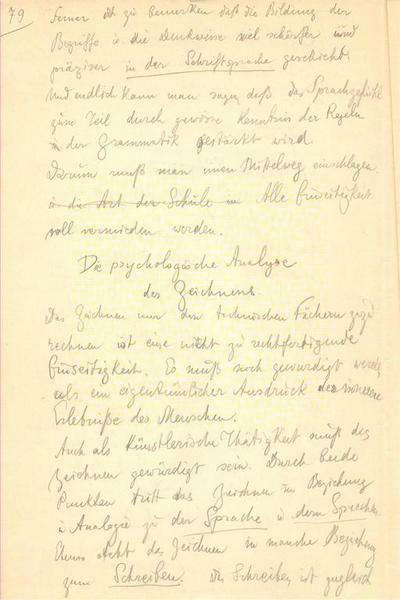 79
Ferner ist zu bemerken daß die Bildung der
Begriffe u. die Denkweise viel schärfer und
präziser in der Schriftsprache geschieht.
Und endlich kann man sagen daß das Sprachgefühl
zum Teil durch gewisse Kenntnis der Regeln
in der Grammatik gestärkt wird.
Darum muß man einen Mittelweg einschlagen
in die Art der Schule im Alle Einseitigkeit
soll vermieden werden.
Die psychologische Analyse
des Zeichnens.
Das Zeichnen nur den technischen Fächern zuzu
rechnen ist eine nicht zu rechtfertigende
Einseitigkeit. Es muß noch gewürdigt werden
als ein eigentümlicher Ausdruck der inneren
Erlebniße des Menschen.
Auch als künstlerische Thätigkeit muß das
Zeichnen gewürdigt sein. Durch beide
Punkten tritt das Zeichnen in Beziehung
u. Analogie zu der Sprache u. dem Sprechen
Ebenso steht das Zeichnen in manche Beziehung
zum Schreiben. Das Schreiben ist zugleich